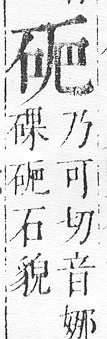 砨
乃可切音娜
䂺砨石貌